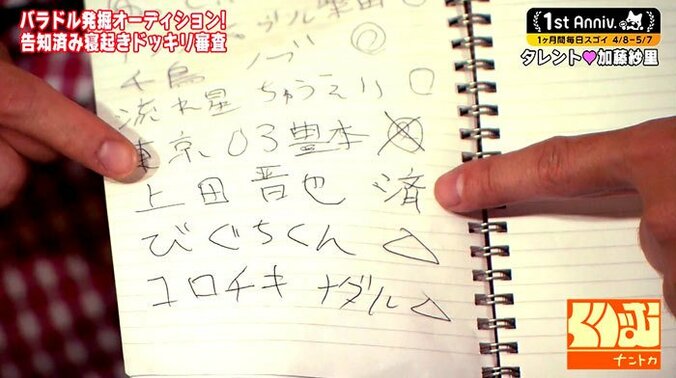 バラドル発掘オーディション!
告知済み寝起きドッキリ審査
1st Anniv.
1ヶ月間毎日スゴイ 4/8-5/7
タレント♥加藤紗里
千鳥 ノブ ○
流れ星 ちゅうえい ○
東京03豊本
上田晋也 済
びぐちくん △
コロチキ ナダル △
ナントカ